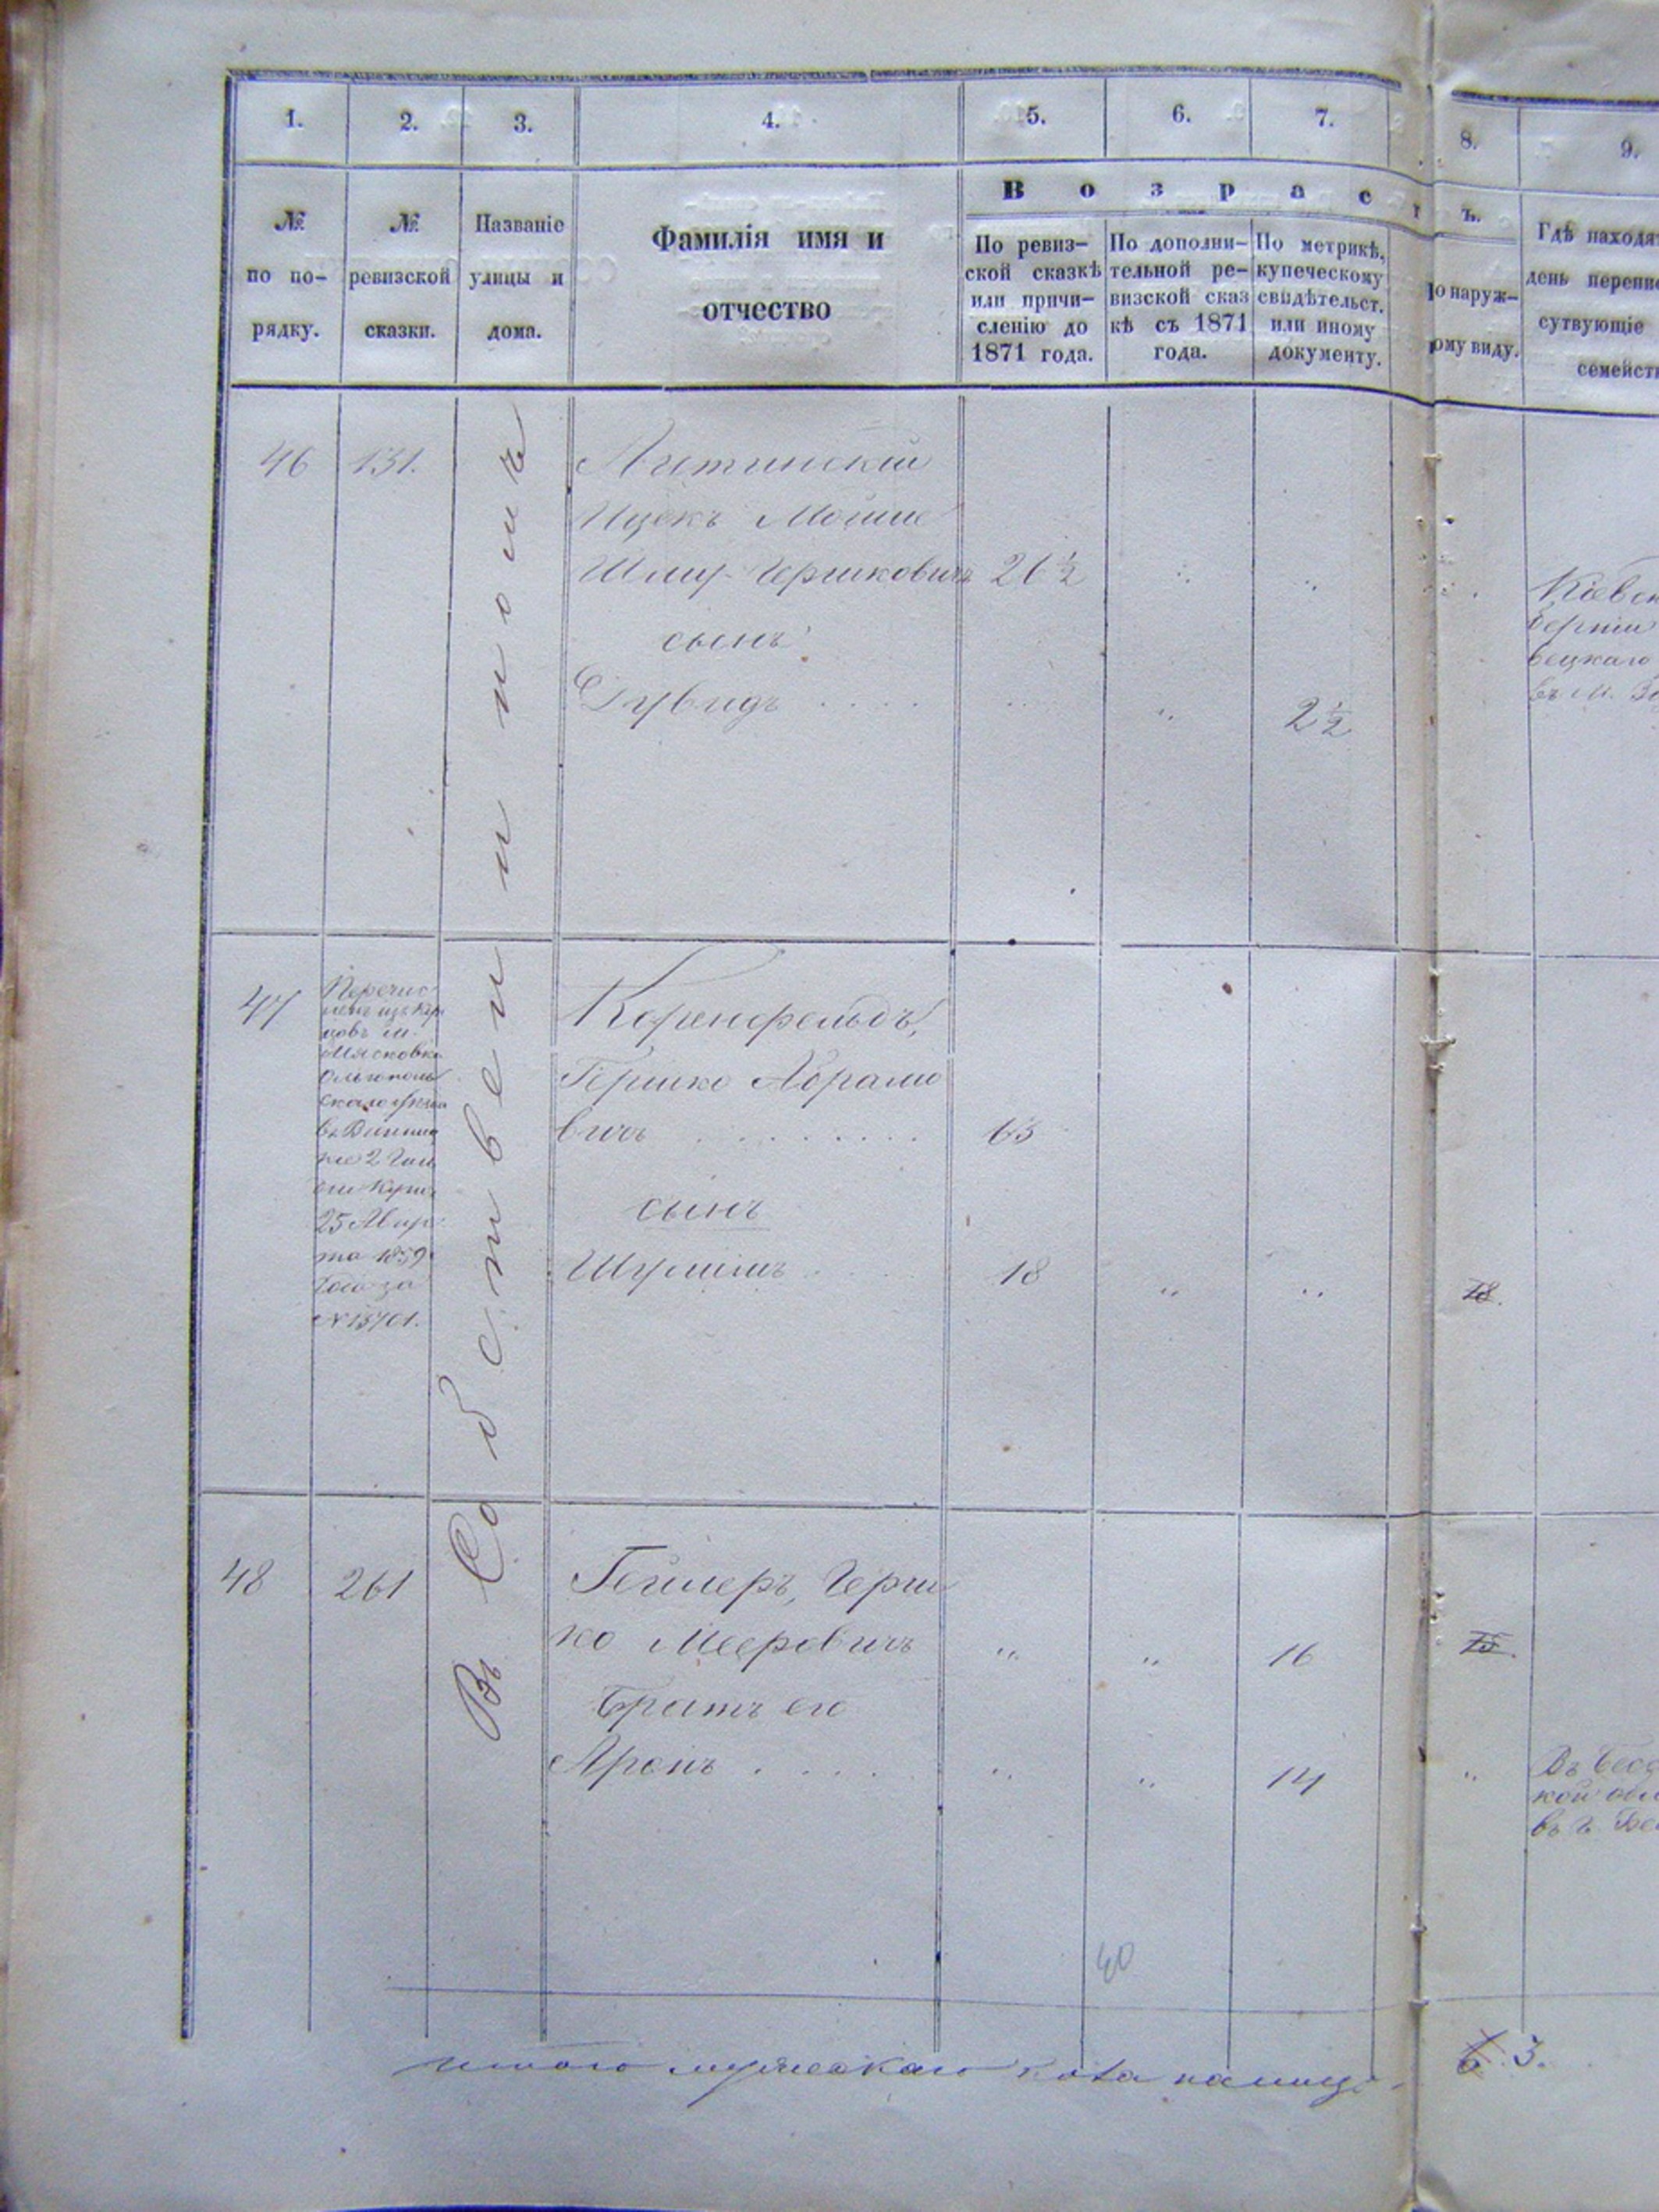 1. 2. 3. 4. 5. 6. 7. 8. 9.
В о з р а с т ъ.
№ по по-рядку.
№ ревизской сказки.
Названіе улицы и дома.
Фамилія имя и отчество
По ревиз-
ской сказкѣ
или причи-
сленію до
1871 года.
По дополни-
тельной ре-
визской сказ
кѣ съ 1871
года.
По метрикѣ,
купеческому
свидѣтельст.
или иному
документу.
о наруж-
ому виду.
Гдѣ находя
день перепи
сутвующіе
семейст
Въ Собственномъ
46 131.
Ицекъ Мошко
Шлиу-Гершковичъ 21½
сынъ
Дувидъ 2½
Кіевск
47
Перечис
ленъ изъ Куп
цовъ м.
Мясковки
Ольгополь
скаго уѣзда
въ Винниц
кіе 2 Гиль
25 Мар
та 1859
Года за
№ 15701.
Коренфельдъ,
Гершко Абрамо
вичъ 63
сынъ
Шулимъ 18 18.
48 261
Геллеръ, Герш
ко Мееровичъ 16 15.
Братъ его
Аронъ 14
кой обл
въ г. Бе
40
итого мужескаго пола налицо 6. 3.